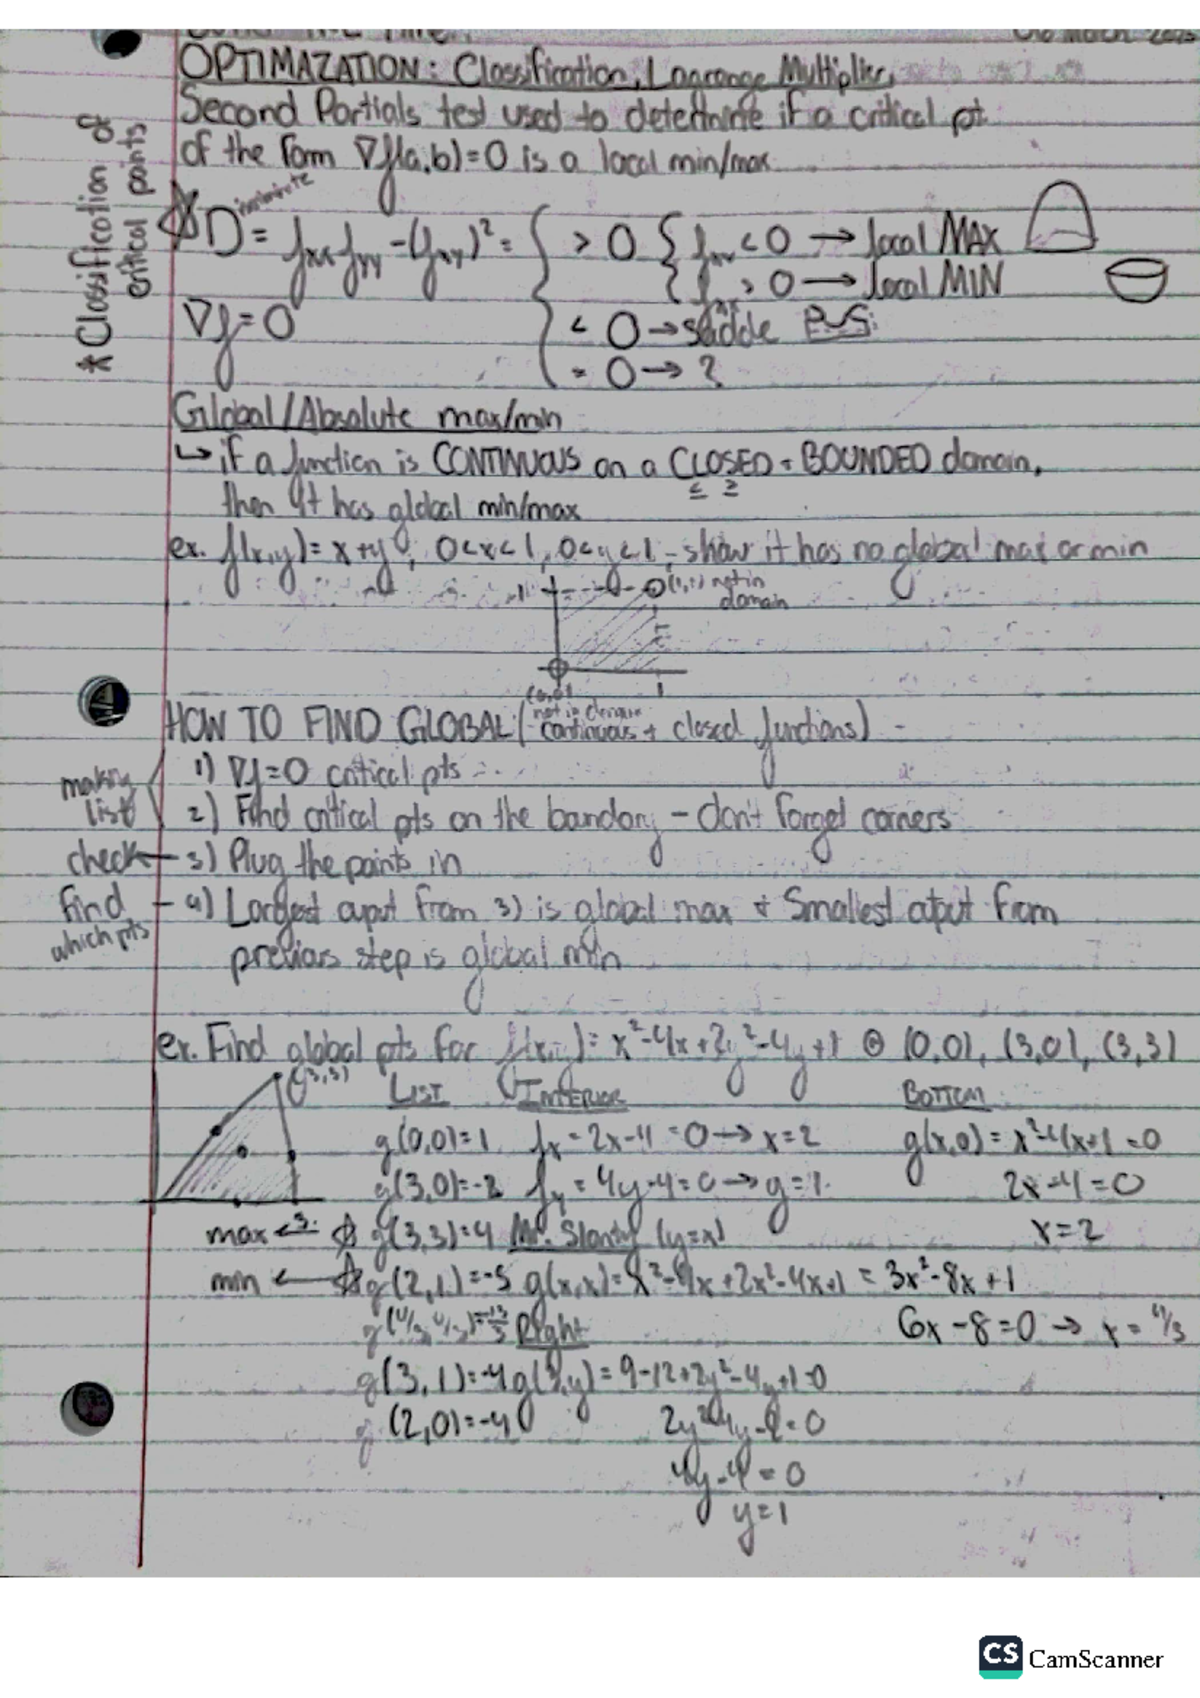 OPTIMAZATION: Classification, Lagrange Multiplier,
Second Partials test used to determine if a critical pt
of the form ∇f(a,b)=0 is a local min/max
* Classification of
critical points
D = fxx fyy - (fxy)² = { > 0 { fxx < 0 → local MAX
{ fxx > 0 → local MIN
∇f=0
< 0 → saddle
= 0 → ?
Global/Absolute max/min
↳ if a function is CONTINUOUS on a CLOSED + BOUNDED domain,
≤ ≥
then it has global min/max
ex. f(x,y)= x+y, 0<x<1, 0<y<1 - show it has no global max or min
1 (1,1) not in
domain
1
(0,0)
not in domain
HOW TO FIND GLOBAL (continuous + closed functions)
making
list
1) ∇f=0 critical pts
2) Find critical pts on the bandory - don't forget corners
check ← 3) Plug the points in
find
which pts
4) Largest ouput from 3) is global max + Smallest output from
previous step is global min
ex. Find global pts for f(x,y)= x²-4x+2y²-4y+1 @ (0,0), (3,0), (3,3)
(3,3)
3
LIST INTERIOR BOTTOM
g(0,0)=1 fx = 2x-4 = 0 → x=2 g(x,0)= x²-4x+1 =0
g(3,0)=-2 fy = 4y-4=0 → y=1 2x-4=0
max ← g(3,3)=4 Mr. Slanty (y=x) x=2
min ← g(2,1)=-5 g(x,x)=x²-4x+2x²-4x+1 = 3x²-8x+1
g(4/3,4/3)=-13/3 Right 6x-8=0 → x=4/3
g(3,1)=-4 g(3,y)= 9-12+2y²-4y+1=0
g(2,0)=-4 2y²-4y-2=0
4y-4=0
y=1
CS CamScanner